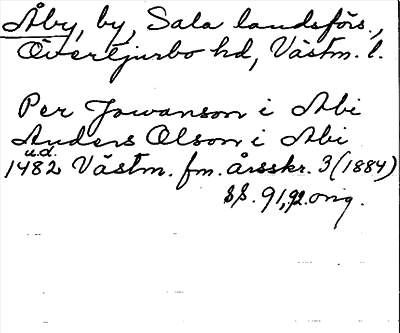 Åby, by, Sala landsförs.,
Övertjurbo hd, Västm. l.
Per Jowanson i Abi
Anders Olson i Abi
u.d.
1482 Västm. fm. årsskr. 3 (1884)
ss. 91, 92. orig.